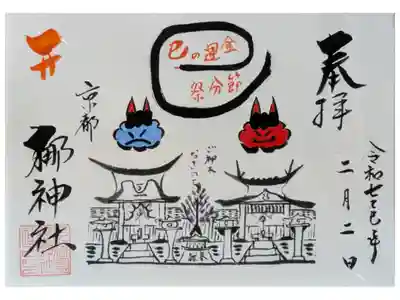 奉拝
令和七乙巳年
二月二日
金運の巳
節分祭
ご神木
京都
梛神社